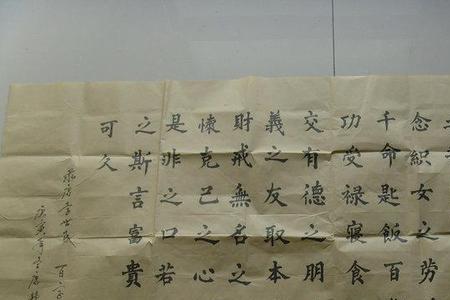 念織女之勞
千命匙飯百
功受祿寢食
交有德之朋
義之友取本
財戒無名之
懷克己之心
是非之口若
之斯言富貴
可久
唐李世民百字
庚寅年